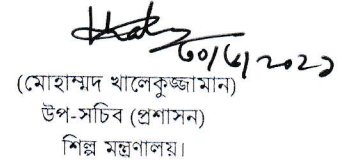 ৩০/৬/২০২১
(মোহাম্মদ খালেকুজ্জামান)
উপ-সচিব (প্রশাসন)
শিল্প মন্ত্রণালয়।